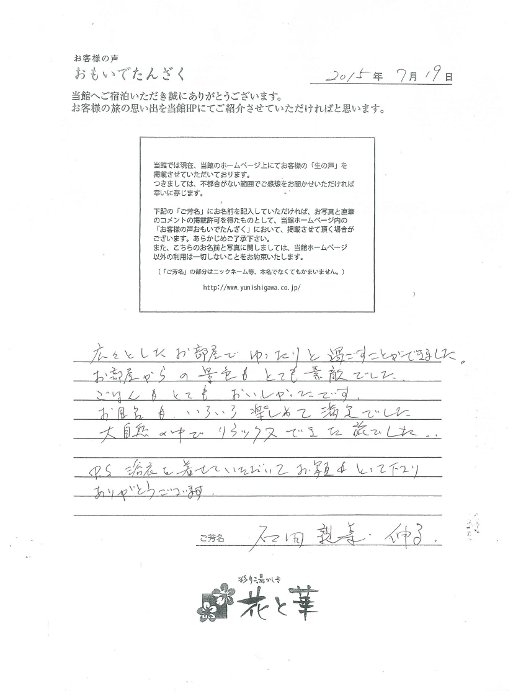 お客様の声
おもいでたんざく
2015年 7月 19日
当館へご宿泊いただき誠にありがとうございます。
お客様の旅の思い出を当館HPにてご紹介させていただければと思います。
当館では現在、当館のホームページ上にてお客様の「生の声」を
掲載させていただいております。
つきましては、不都合がない範囲でご感想をお聞かせいただければ
幸いに存じます。
下記の「ご芳名」にお名前を記入していただければ、お写真と直筆
のコメントの掲載許可を得たものとして、当館ホームページ内の
「お客様の声おもいでたんざく」において、掲載させて頂く場合が
ございます。あらかじめご了承下さい。
また、こちらのお名前と写真に関しましては、当館ホームページ
以外の利用は一切しないことをお約束いたします。
(「ご芳名」の部分はニックネーム等、本名でなくてもかまいません。)
http://www.yunishigawa.co.jp/
広々としたお部屋でゆったりと過ごすことができました。
お部屋からの景色もとても素敵でした。
ごはんもとてもおいしかったです。
お風呂もいろいろ楽しめて満足でした
大自然の中でリラックスできた旅でした..
P.S 浴衣を着せていただいてお写真もとって下さり
ありがとうございます
ご芳名 石田
花と華